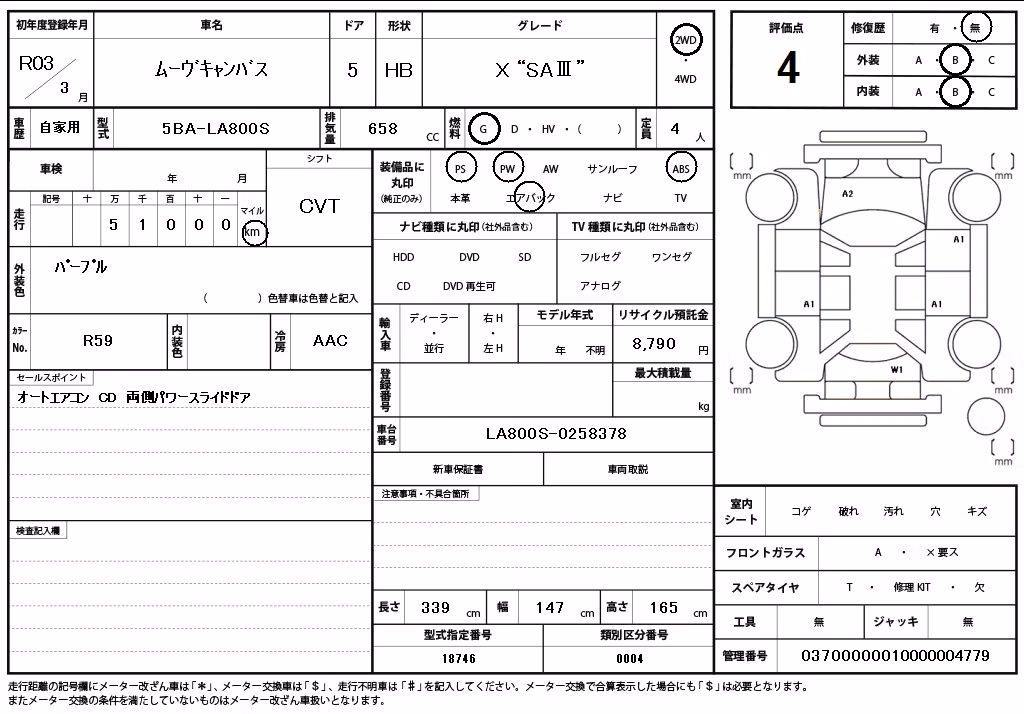 初年度登録年月 車名 ドア 形状 グレード
R03 3 月 ムーヴキャンバス 5 HB X “SAⅢ” 2WD ・ 4WD
車歴 自家用 型式 5BA-LA800S 排気量 658 CC 燃料 G D ・ HV ・ ( ) 定員 4 人
車検 年 月 シフト
CVT
走行 記号 十 万 千 百 十 一 マイル
5 1 0 0 0 km
外装色 パープル
( ) 色替車は色替と記入
カラーNo. R59 内装色 冷房 AAC
セールスポイント
オートエアコン CD 両側パワースライドドア
検査記入欄
装備品に丸印 (純正のみ) PS PW AW サンルーフ ABS
本革 エアバック ナビ TV
ナビ種類に丸印(社外品含む) TV種類に丸印(社外品含む)
HDD DVD SD フルセグ ワンセグ
CD DVD再生可 アナログ
輸入車 ディーラー ・ 並行 右H ・ 左H モデル年式 年 不明 リサイクル預託金 8,790 円
登録番号 最大積載量 kg
車台番号 LA800S-0258378
新車保証書 車両取説
注意事項・不具合箇所
長さ 339 cm 幅 147 cm 高さ 165 cm
型式指定番号 類別区分番号
18746 0004
評価点 4
修復歴 有 ・ 無
外装 A ・ B ・ C
内装 A ・ B ・ C
[ ] mm [ ] mm
A2
A1
A1 A1
W1
[ ] mm [ ] mm
[ ] mm
室内シート コゲ 破れ 汚れ 穴 キズ
フロントガラス A ・ ×要ス
スペアタイヤ T ・ 修理KIT ・ 欠
工具 無 ジャッキ 無
管理番号 03700000010000004779
走行距離の記号欄にメーター改ざん車は「＊」、メーター交換車は「＄」、走行不明車は「＃」を記入してください。メーター交換で合算表示した場合にも「＄」は必要となります。
またメーター交換の条件を満たしていないものはメーター改ざん車扱いとなります。